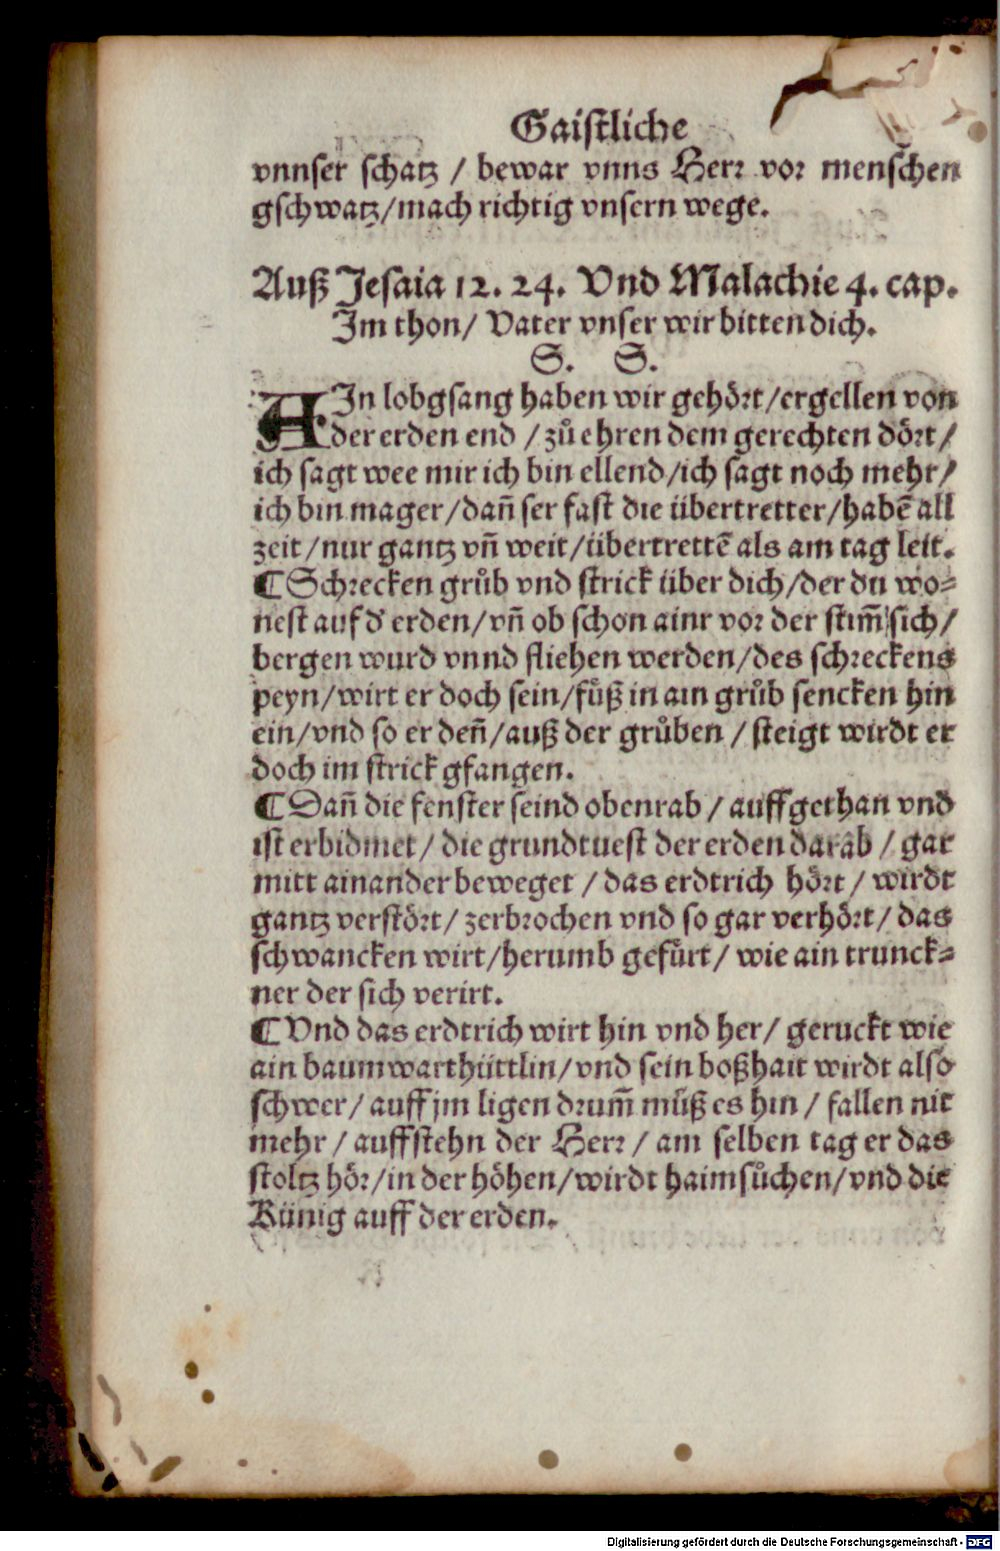 Gaistliche
vnnser schatz / bewar vnns Herr vor menschen
gschwatz/mach richtig vnsern wege.
Auß Jesaia 12. 24. Vnd Malachie 4. cap.
Im thon/ Vater vnser wir bitten dich.
S. S.
AIn lobgsang haben wir gehört/ergellen von
der erden end / zů ehren dem gerechten dört/
ich sagt wee mir ich bin ellend/ich sagt noch mehr/
ich bin mager/dañ ser fast die übertretter/habē all
zeit/nur gantz vñ weit/übertrettē als am tag leit.
¶ Schrecken grůb vnd strick über dich/der du wo-
nest auf d' erden/vñ ob schon ainr vor der stim̄ sich/
bergen wurd vnnd fliehen werden/des schreckens
peyn/wirt er doch sein/fůß in ain grůb sencken hin
ein/vnd so er deñ/auß der grůben / steigt wirdt er
doch im strick gfangen.
¶ Dañ die fenster seind obenrab / auffgethan vnd
ist erbidmet / die grundtuest der erden darab / gar
mitt ainander beweget / das erdtrich hört / wirdt
gantz verstört/ zerbrochen vnd so gar verhört/ das
schwancken wirt/herumb gefürt/ wie ain trunck-
ner der sich verirt.
¶ Vnd das erdtrich wirt hin vnd her/ geruckt wie
ain baumwarthüttlin/vnd sein boßhait wirdt also
schwer/ auff jm ligen drum̄ můß es hin / fallen nit
mehr / auffstehn der Herr / am selben tag er das
stoltz hör/in der höhen/wirdt haimsůchen/vnd die
Künig auff der erden.
Digitalisierung gefördert durch die Deutsche Forschungsgemeinschaft - DFG